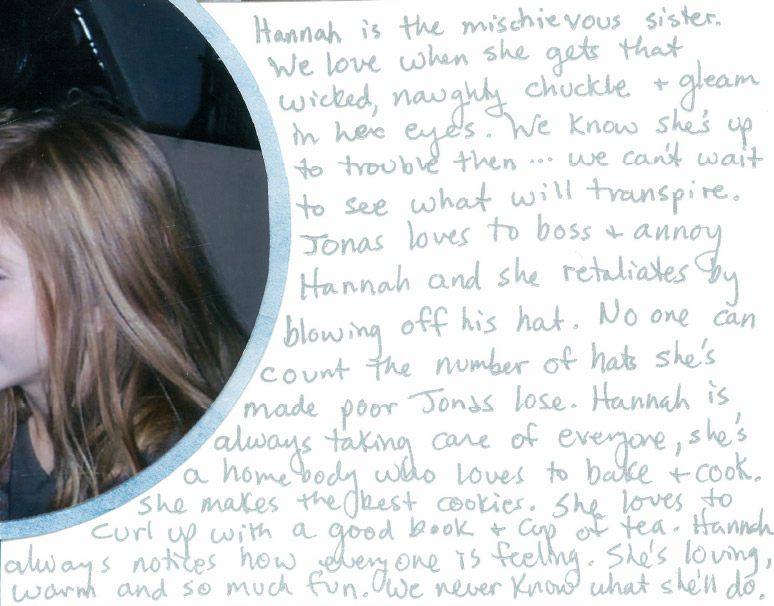 Hannah is the mischievous sister.
We love when she gets that
wicked, naughty chuckle + gleam
in her eyes. We know she's up
to trouble then... we can't wait
to see what will transpire.
Jonas loves to boss + annoy
Hannah and she retaliates by
blowing off his hat. No one can
count the number of hats she's
made poor Jonas lose. Hannah is
always taking care of everyone, she's
a homebody who loves to bake + cook.
She makes the best cookies. She loves to
curl up with a good book + cup of tea. Hannah
always notices how everyone is feeling. She's loving,
warm and so much fun. We never know what she'll do.